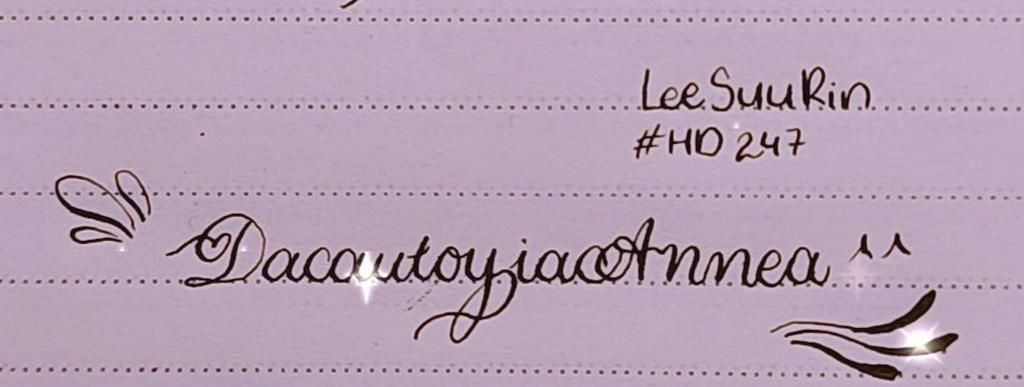 LeeSuuRin
#HD 247
DacautoyiacoAnnea ^^